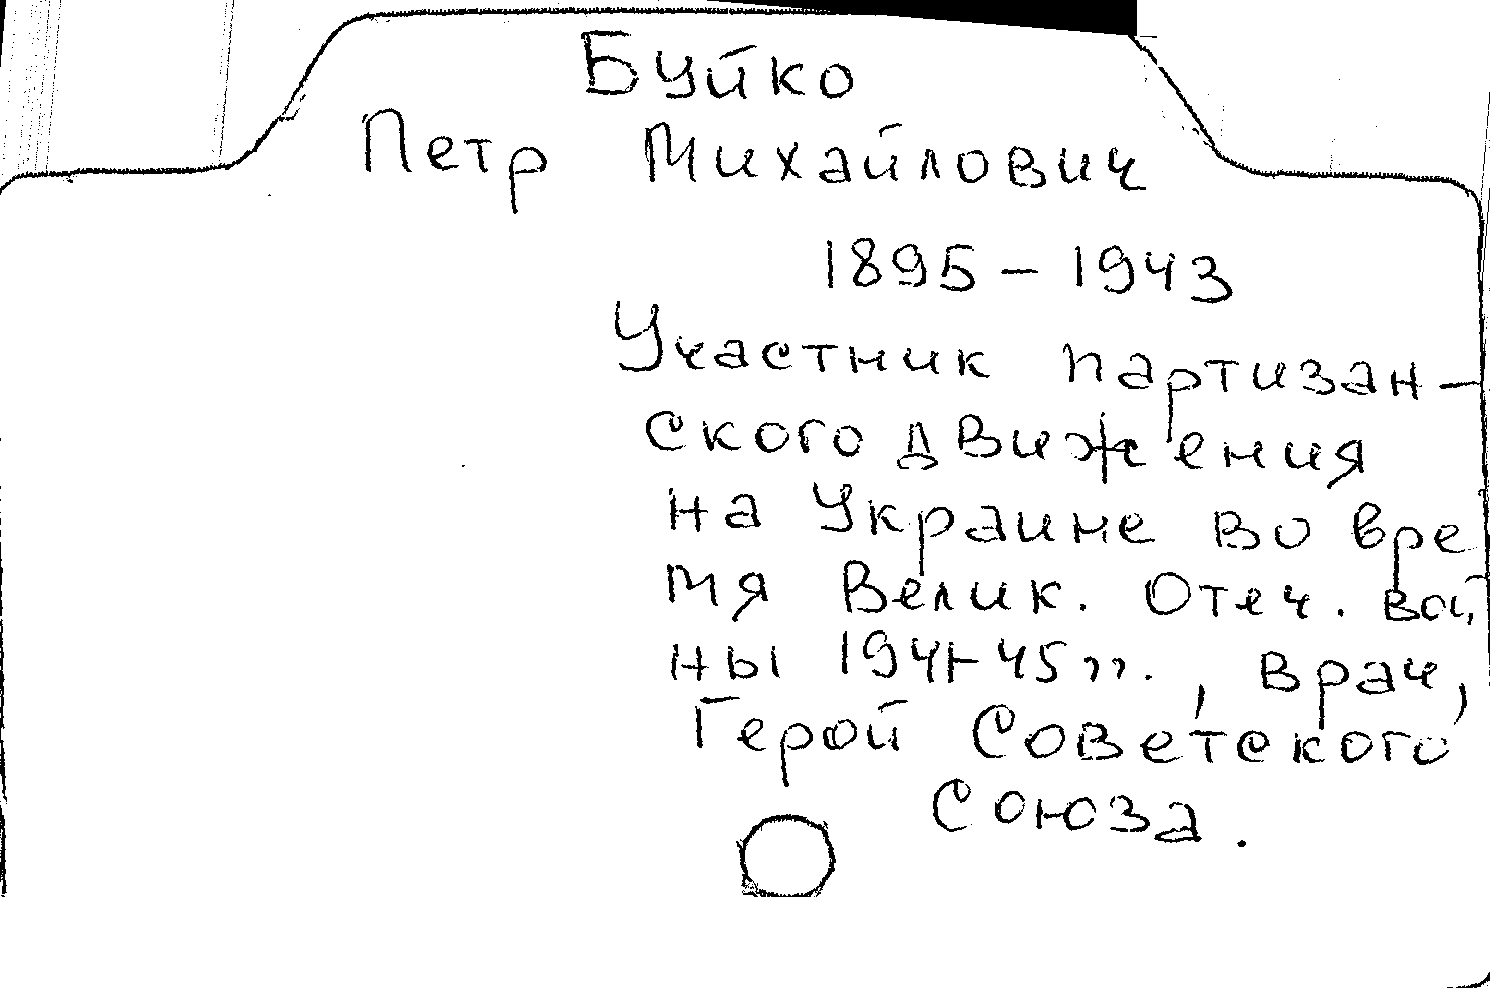 Буйко
Петр Михайлович
1895 – 1943
Участник партизан–
ского движения
на Украине во вре
мя Велик. Отеч. вой
ны 1941–45 гг., врач,
Герой Советского
Союза.